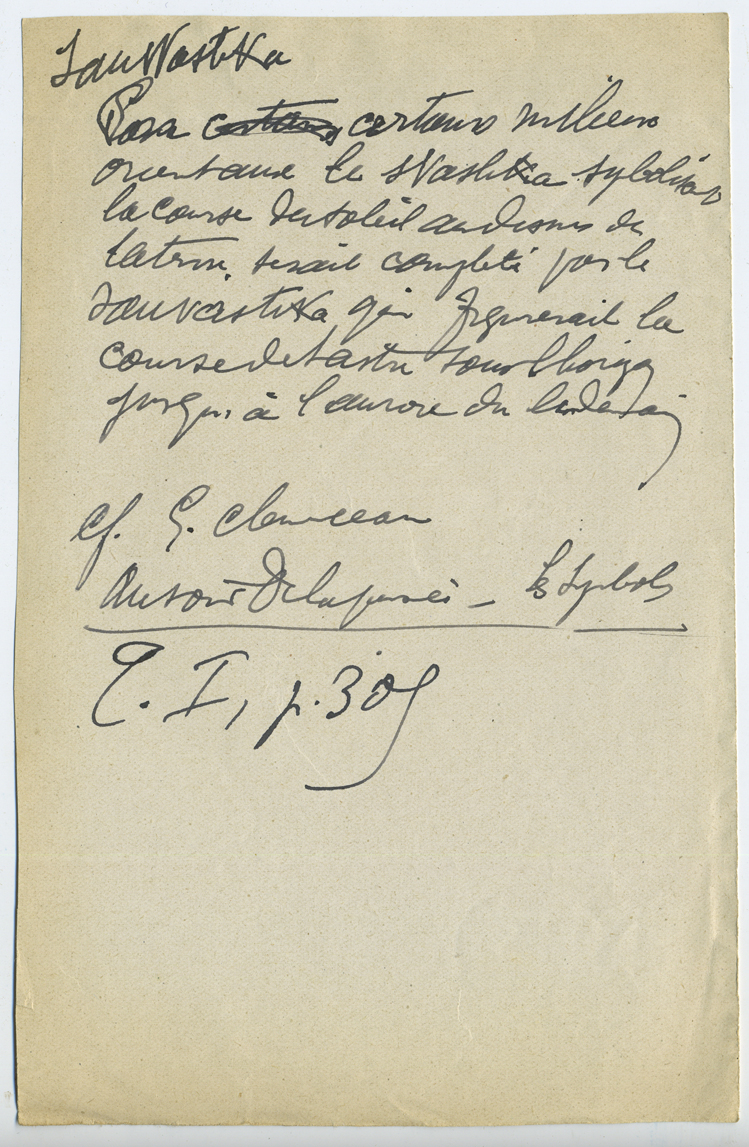 Sauvastika
Pour certains certains milieux
orientaux le svastika sybolisant
la course du soleil au dessus de
la terre, serait complété par le
Sauvastika qui figurerait la
course de l'astre sous l'horizon
jusqu'à l'aurore du lendemain
cf. G. Clemenceau
Autour de la pensée – Les Symboles
T. I, p. 309